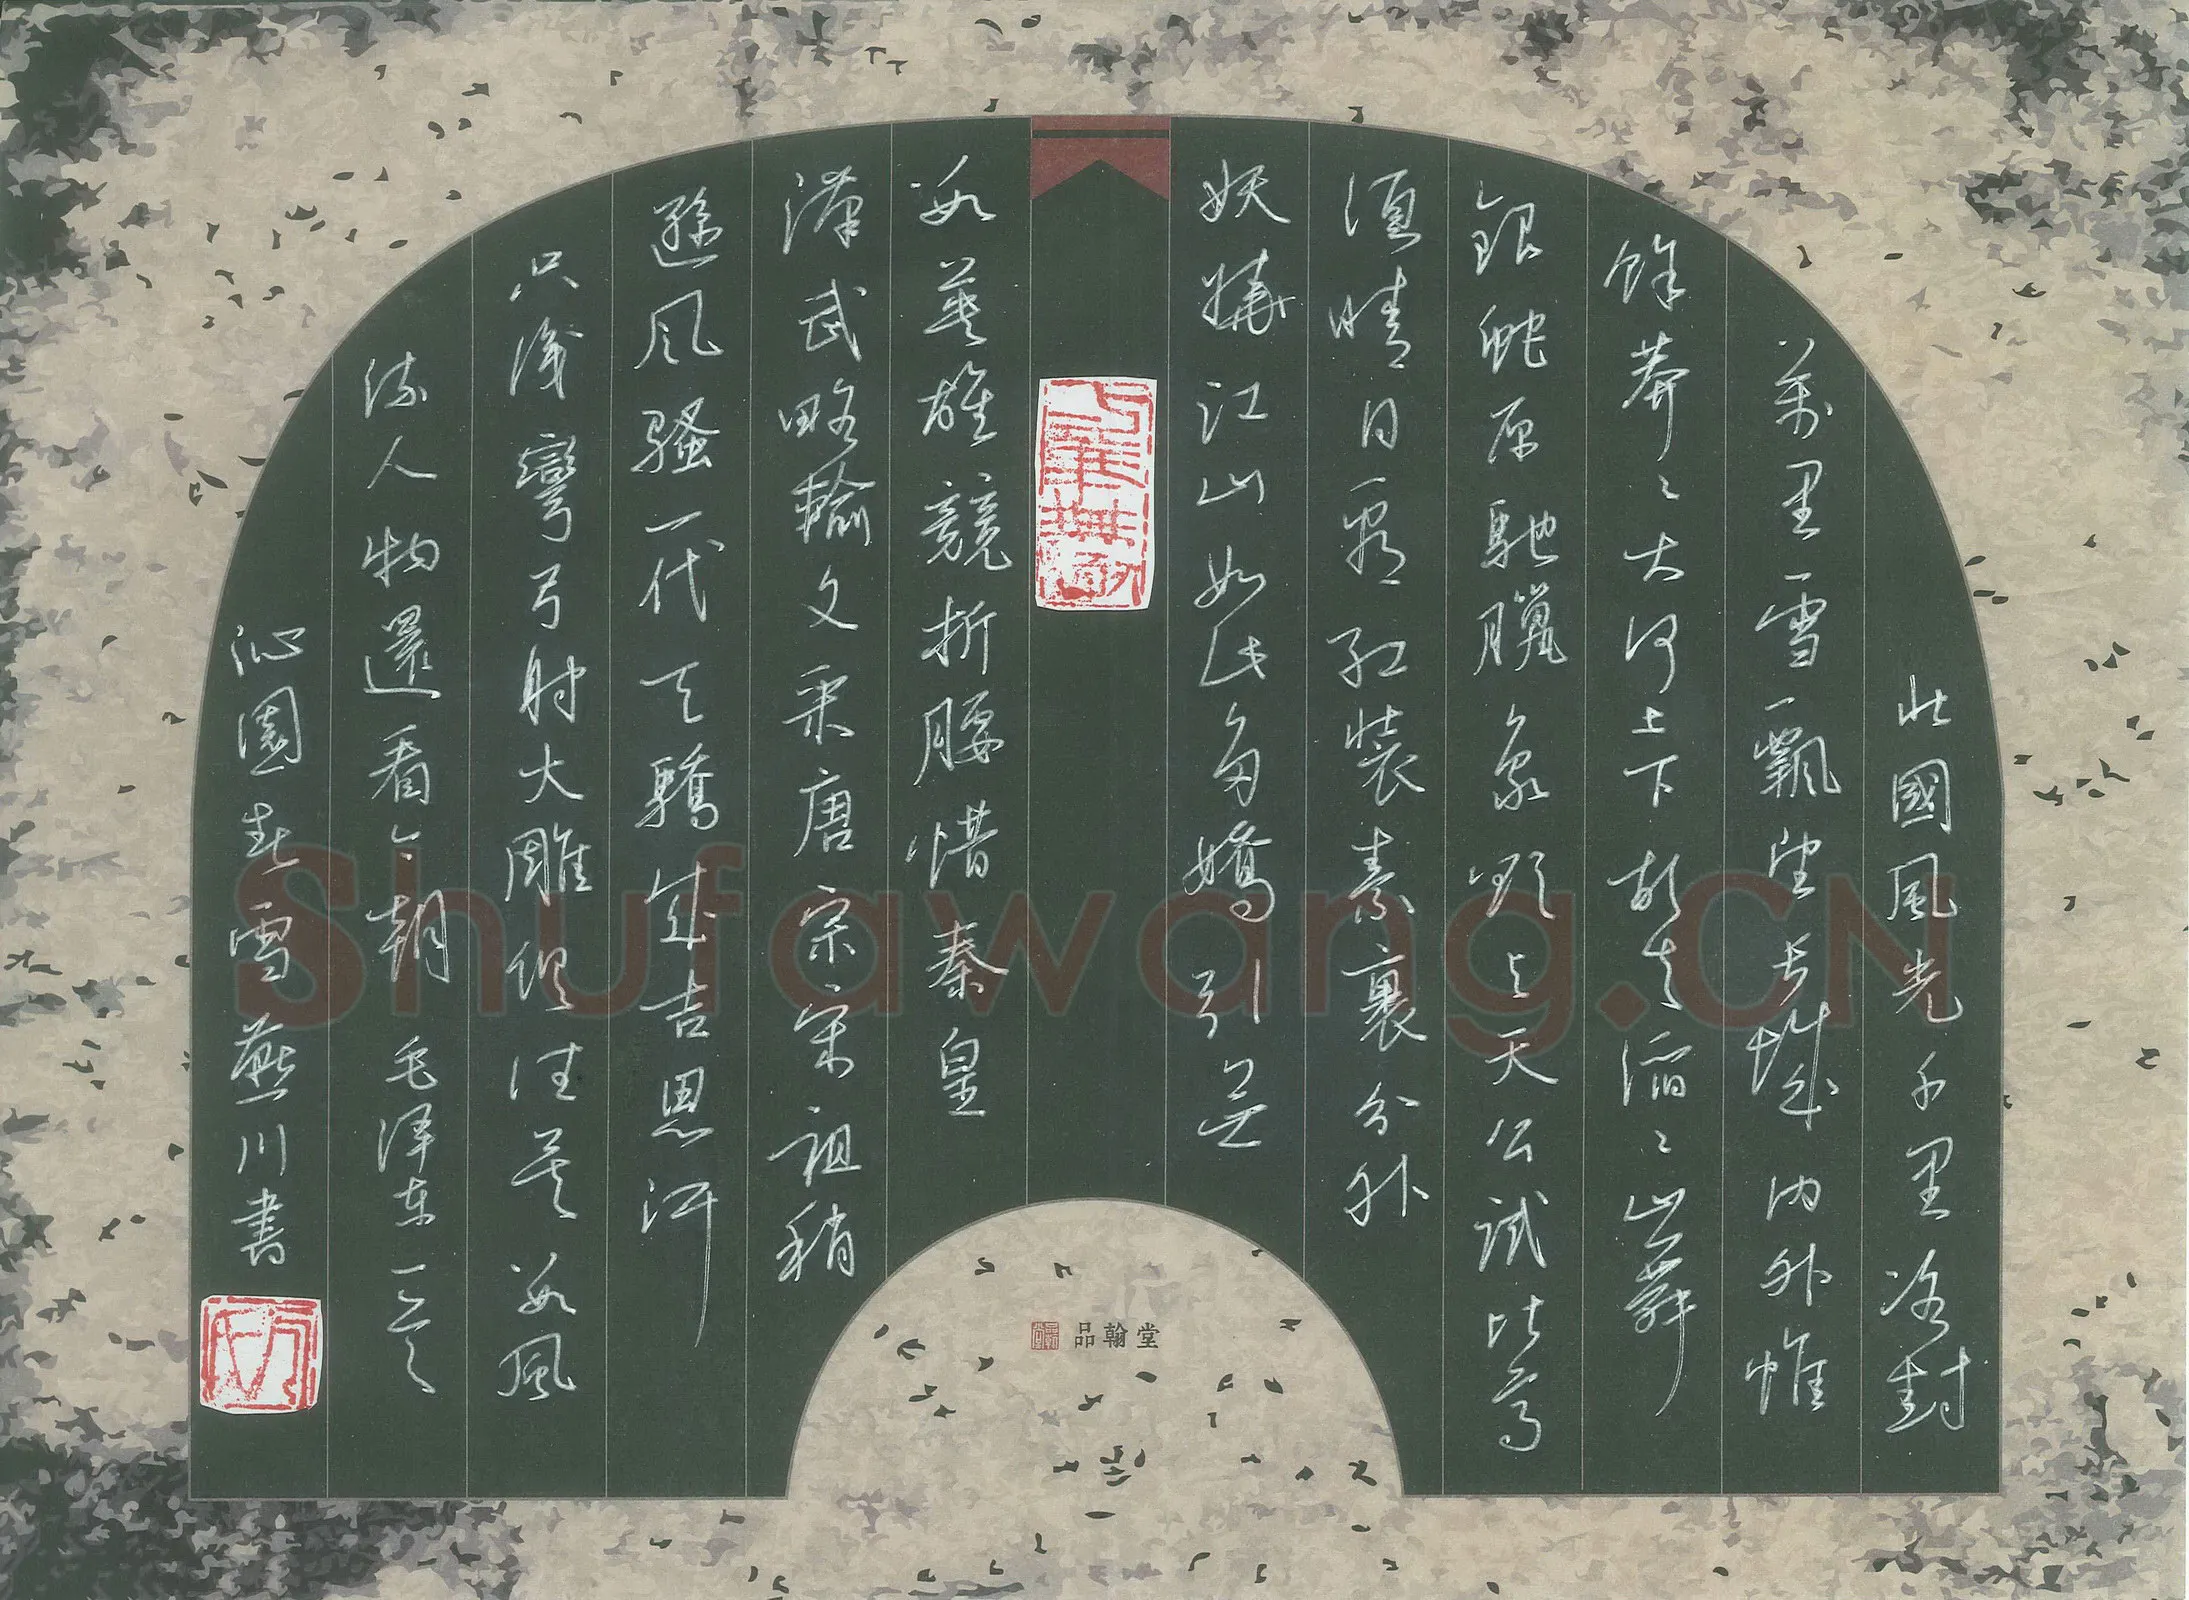 北國風光千里冰封
萬里雪飄望長城內外惟
餘莽々大河上下頓失滔々山舞
銀蛇原馳臘象欲與天公試比高
須晴日看紅裝素裹分外
妖嬈江山如此多嬌引無
數英雄競折腰惜秦皇
漢武略輸文采唐宗宋祖稍
遜風騷一代天驕成吉思汗
只識彎弓射大雕俱往矣數風
流人物還看今朝 毛澤東一首
沁園春雪 燕川書
品翰堂
Shufawang.CN